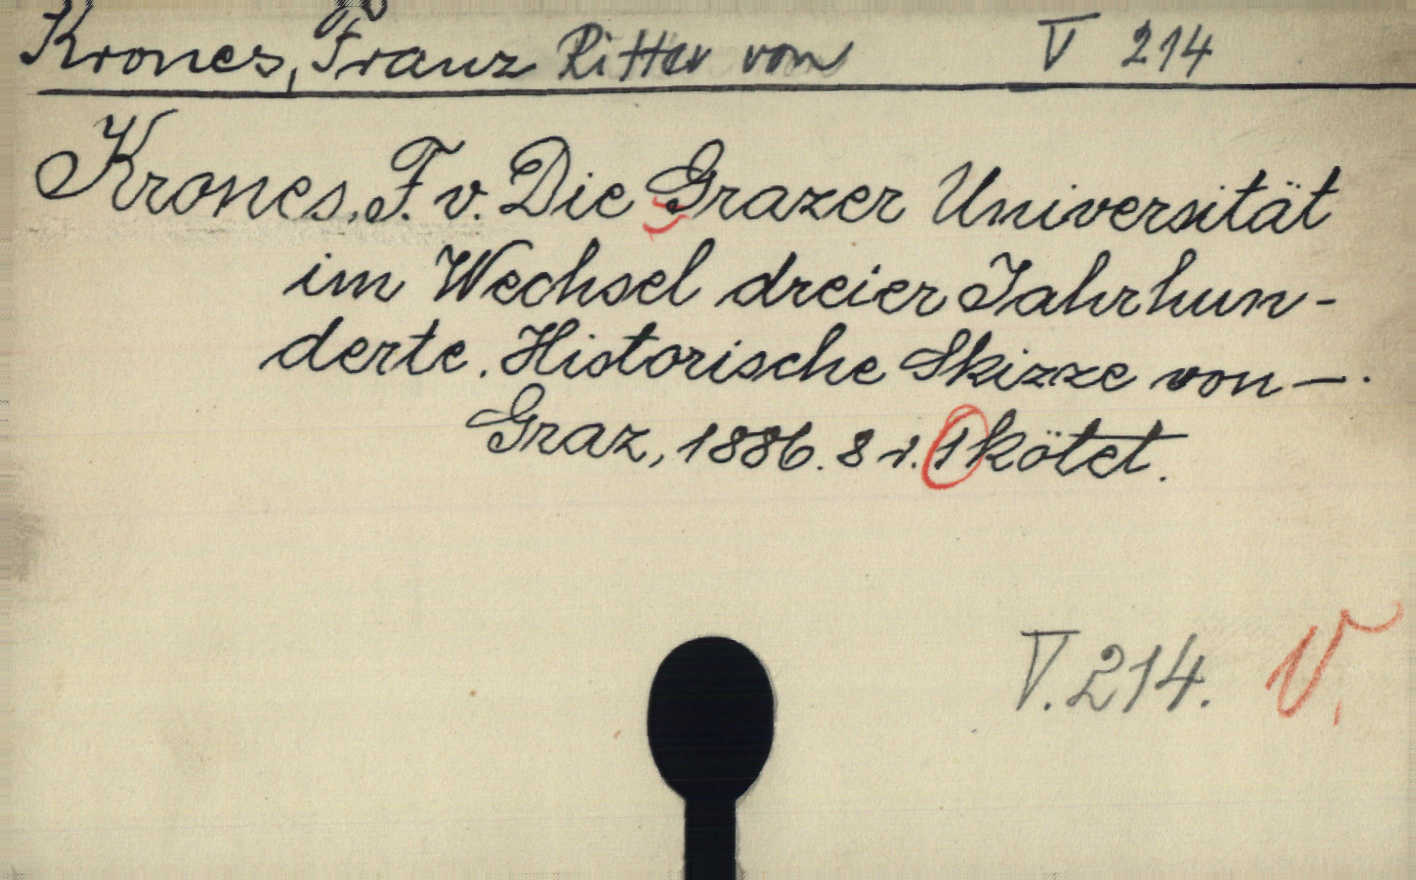 Krones, Franz Ritter von V 214
Krones, F. v. Die Grazer Universität
im Wechsel dreier Jahrhun-
derte. Historische Skizze von —.
Graz, 1886. 8 r. 1 kötet.
V. 214. V.